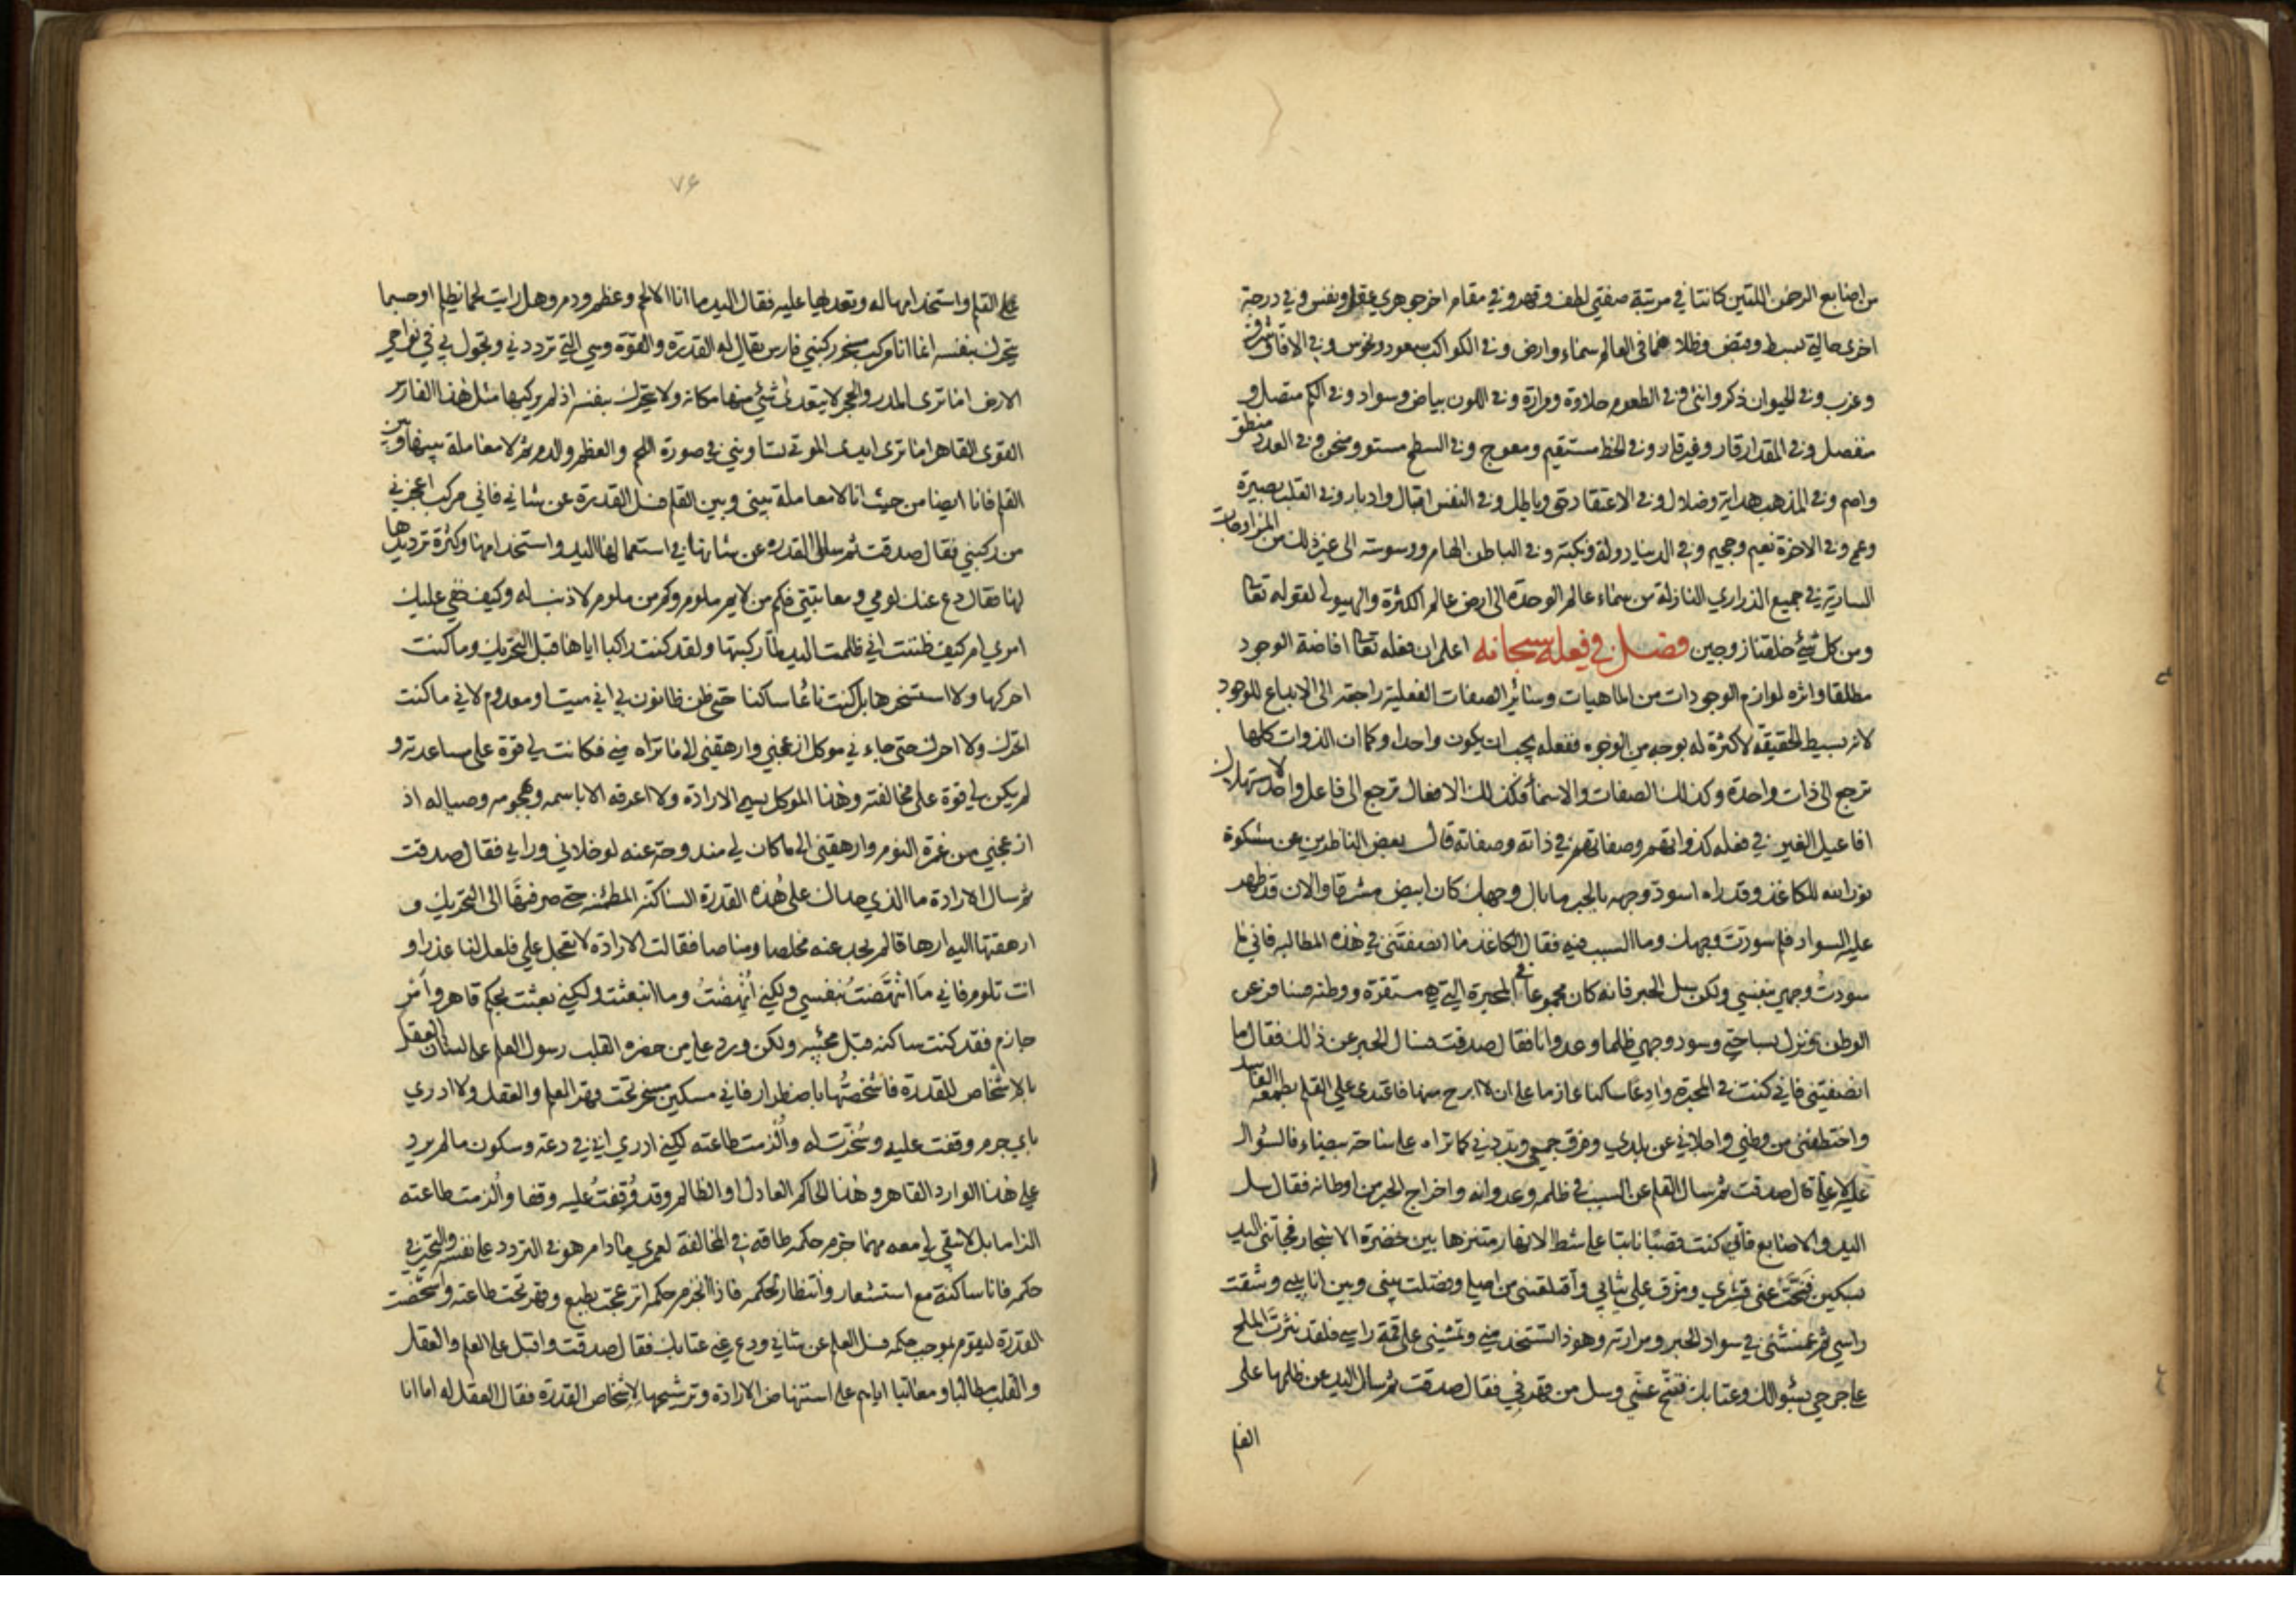 من اصابع الرحمن اللتين كانتا في مرتبة صفتي لطف وقهر وفي مقام اخر جوهري عقل ونفس وفي درجة
اخرى حالتي بسط وقبض وظلا هما في العالم سماء وارض وفي الكواكب سعود ونحوس وفي الافاق شرق
وغرب وفي الحيوان ذكر وانثى وفي الطعوم حلاوة ومرارة وفي اللون بياض وسواد وفي الكم متصل و
منفصل وفي المقدار قار وغير قار وفي الخط مستقيم ومعوج وفي السطح مستو ومنحن وفي العدد منطق
واصم وفي المذهب هداية وضلال وفي الاعتقاد حق وباطل وفي النفس اقبال وادبار وفي القلب بصيرة
وعمى وفي الاخرة نعيم وجحيم وفي الدنيا دولة ونكبة وفي الباطن الهام ووسوسة الى غير ذلك من المزاوجات
السارية في جميع الذراري النازلة من سماء عالم الوحدة الى ارض عالم الكثرة والهيولى لقوله تعا
ومن كل شيء خلقنا زوجين فصل في فعله سبحانه اعلم ان فعله تعا افاضة الوجود
مطلقا واثره لوازم الوجودات من الماهيات وسائر الصفات الفعلية راجعة الى الابداع للوجود
لانه بسيط الحقيقة لا كثرة له بوجه من الوجوه ففعله يجب ان يكون واحدا وكما ان الذوات كلها
ترجع الى ذات واحدة وكذلك الصفات والاسماء فكذلك الافعال ترجع الى فاعل واحد لاستهلاك
افاعيل الغير في فعله كذواتهم وصفاتهم في ذاته وصفاته قال بعض الناظرين عن مشكوة
نور الله للكاغذ وقد راه اسود وجهه بالحبر ما بال وجهك كان ابيض مشرقا والان قد ظهر
عليه السواد فلم سودت وجهك وما السبب فيه فقال الكاغذ ما انصفتني في هذه المطالبة فاني ما
سودت وجهي بنفسي ولكن سل الحبر فانه كان مجموعا في المحبرة التي هي مستقره ووطنه فسافر عن
الوطن ونزل بساحتي وسود وجهي ظلما وعدوانا فقال صدقت فسال الحبر عن ذلك فقال ما
انصفتني فاني كنت في المحبرة وادعا ساكنا عازما على ان لا ابرح منها فاعتدى علي القلم بطمعه الفاسد
واختطفني من وطني واجلاني عن بلادي وفرق جمعي وبددني كما تراه على ساحة بيضاء فالسؤال
عليه لا علي قال صدقت ثم سال القلم عن السبب في ظلمه وعدوانه واخراج الحبر من اوطانه فقال سل
اليد والاصابع فاني كنت قصبا نابتا على شط الانهار متنزها بين خضرة الاشجار فجاتني اليد
بسكين فنحت عني قشري ومزق علي ثيابي واقلعتني من اصلي وفصلت بيني وبين انابيبي وشقت
راسي ثم غمستني في سواد الحبر ومرارته وهو ذا تستخدمني وتمشيني على قمة راسي فلقد نثرت الملح
على جرحي بسؤالك وعتابك فتنح عني وسل من قهرني فقال صدقت ثم سال اليد عن ظلمها على
القلم
٧٦
على القلم واستخدامها له وتعديها عليه فقال اليد ما انا الا لحم وعظم ودم وهل رايت لحما يظلم او جسما
يتحرك بنفسه انما انا مركب مسخر ركبني فارس يقال له القدرة والقوة وهي التي ترددني وتجول بي في نواحي
الارض اما ترى المدر والحجر لا يتعدى شيء منها مكانه ولا يتحرك بنفسه اذ لم يركبها مثل هذا الفارس
القوي القاهر اما ترى ايدي الموتى تساويني في صورة اللحم والعظم والدم ثم لا معاملة بينها وبين
القلم فانا ايضا من حيث انا لا معاملة بيني وبين القلم فسل القدرة عن شاني فاني مركب ازعجني
من ركبني فقال صدقت ثم سال القدرة عن شانها في استعمالها اليد واستخدامها وكثرة ترديدها
لها فقال دع عنك لومي ومعاتبتي فكم من لايم ملوم وكم من ملوم لا ذنب له وكيف خفي عليك
امري ام كيف ظننت اني ظلمت اليد لما ركبتها ولقد كنت راكبا اياها قبل التحريك وما كنت
احركها ولا استسخرها بل كنت نائما ساكنا حتى ظن ظانون بي اني ميت او معدوم لاني ما كنت
اتحرك ولا احرك حتى جاءني موكل ازعجني وارهقني الى ما تراه مني فكانت لي قوة على مساعدته و
لم يكن لي قوة على مخالفته وهذا الموكل يسمى الارادة ولا اعرفه الا باسمه وهجومه وصياله اذ
ازعجني من غمرة النوم وارهقني الى ما كان لي مندوحة عنه لو خلاني ورايي فقال صدقت
ثم سال الارادة ما الذي جراك على هذه القدرة الساكنة المطمئنة حتى صرفتها الى التحريك و
ارهقتها اليه ارهاقا لم يجد عنه مخلصا ومناصا فقالت الارادة لا تعجل علي فلعل لنا عذرا و
انت تلوم فاني ما انتهضت بنفسي ولكني انهضت وما انبعثت ولكني بعثت بحكم قاهر وامر
جازم فقد كنت ساكنة قبل مجيئه ولكن ورد علي من حضرة القلب رسول العلم على لسان العقل
بالاشخاص للقدرة فاشخصتها باضطرار فاني مسكين مسخر تحت قهر العلم والعقل ولا ادري
باي جرم وقفت عليه وسخرت له والزمت طاعته لكني ادري اني في دعة وسكون ما لم يرد
علي هذا الوارد القاهر وهذا الحاكم العادل او الظالم وقد وقفت عليه وقفا والزمت طاعته
الزاما بل لا يبقى لي معه مهما جزم حكمه طاقة في المخالفة لعمري ما دام هو في التردد مع نفسه والتحير في
حكمه فانا ساكنة مع استشعار وانتظار لحكمه فاذا انجزم حكمه انزعجت بطبع وقهر تحت طاعته واشخصت
القدرة ليقوم بموجب حكمه فسل العلم عن شاني ودع عني عتابك فقال صدقت واقبل على العلم والعقل
والقلب مطالبا ومعاتبا اياهم على استنهاض الارادة وترشيحها لاشخاص القدرة فقال العقل له اما انا